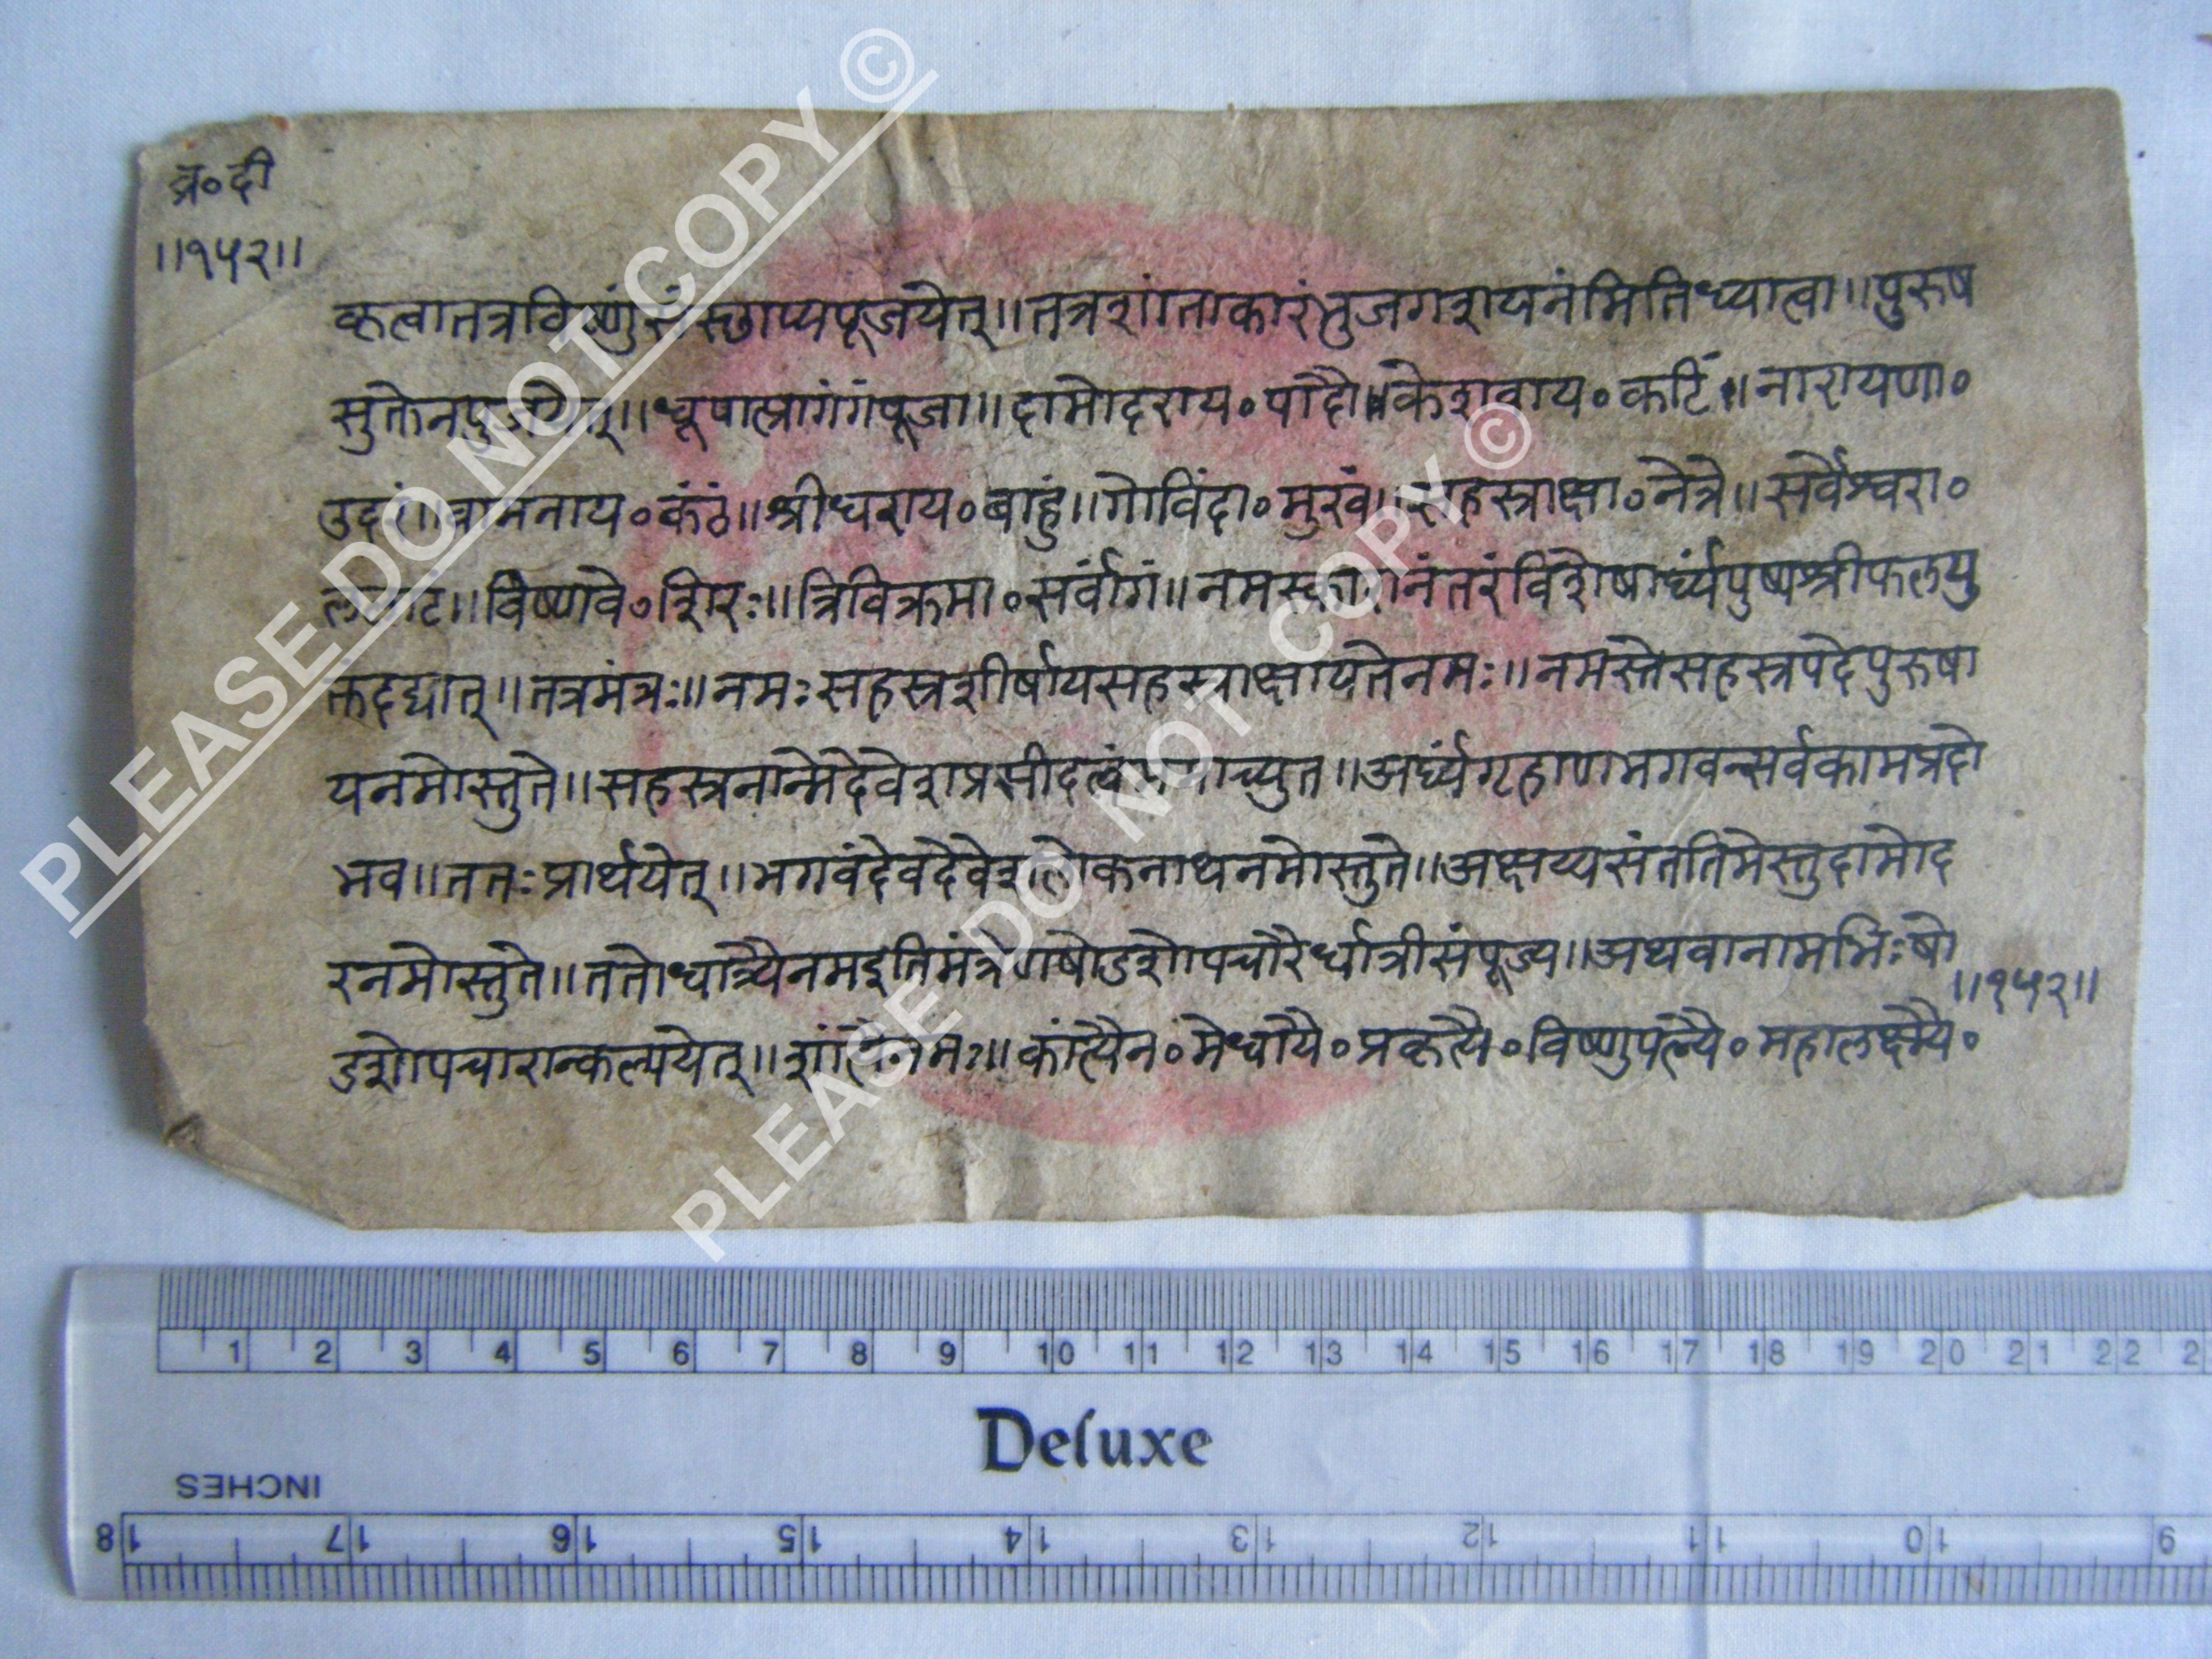 व्र॰दी
॥१५२॥
कृत्वातत्रविष्णुंसंस्छाप्यपूजयेत्॥तत्रशांताकारंभुजगशयनंमितिध्यात्वा॥पुरुष
सुक्तेनपुजयेत्॥धूपात्प्रागंगंपूजा॥दामोदराय॰पादौ॥केशवाय॰कटिं॥नारायणा॰
उदरं॥वामनाय॰कंठं॥श्रीधराय॰बाहुं॥गोविंदा॰मुखं॥सहस्त्राक्षा॰नेत्रे॥सर्वेश्वरा॰
ललाट॥विष्णवे॰शिरः॥त्रिविक्रमा॰सर्वांगं॥नमस्कारानंतरंविशेषार्घ्यंपुष्पश्रीफलयु
क्तंदद्यात्॥तत्रमंत्रः॥नमःसहस्त्रशीर्षायसहस्त्राक्षायतेनमः॥नमस्तेसहस्त्रपदेपुरुषा
यनमोस्तुते॥सहस्त्रनान्मेदेवेशप्रसीदत्वंममाच्युत॥अर्घ्यंगृहाणभगवन्सर्वकामप्रदो
भव॥ततःप्रार्थयेत्॥भगवंदेवदेवेशलोकनाथनमोस्तुते॥अक्षय्यसंततिमेस्तुदामोद
रनमोस्तुते॥ततोधात्र्यैनमइतिमंत्रेणषोडशोपचारैर्धात्रीसंपूज्य॥अथवानामभिःषो
॥१५२॥
डशोपचारान्कल्पयेत्॥शांत्यैनमः॥कांत्यैन॰मेधायै॰प्रकृत्यै॰विष्णुपत्न्यै॰महालक्ष्म्यै॰
PLEASE DO NOT COPY ©
PLEASE DO NOT COPY ©
1 2 3 4 5 6 7 8 9 10 11 12 13 14 15 16 17 18 19 20 21 22
Deluxe
INCHES
18 17 16 15 14 13 12 11 10 9